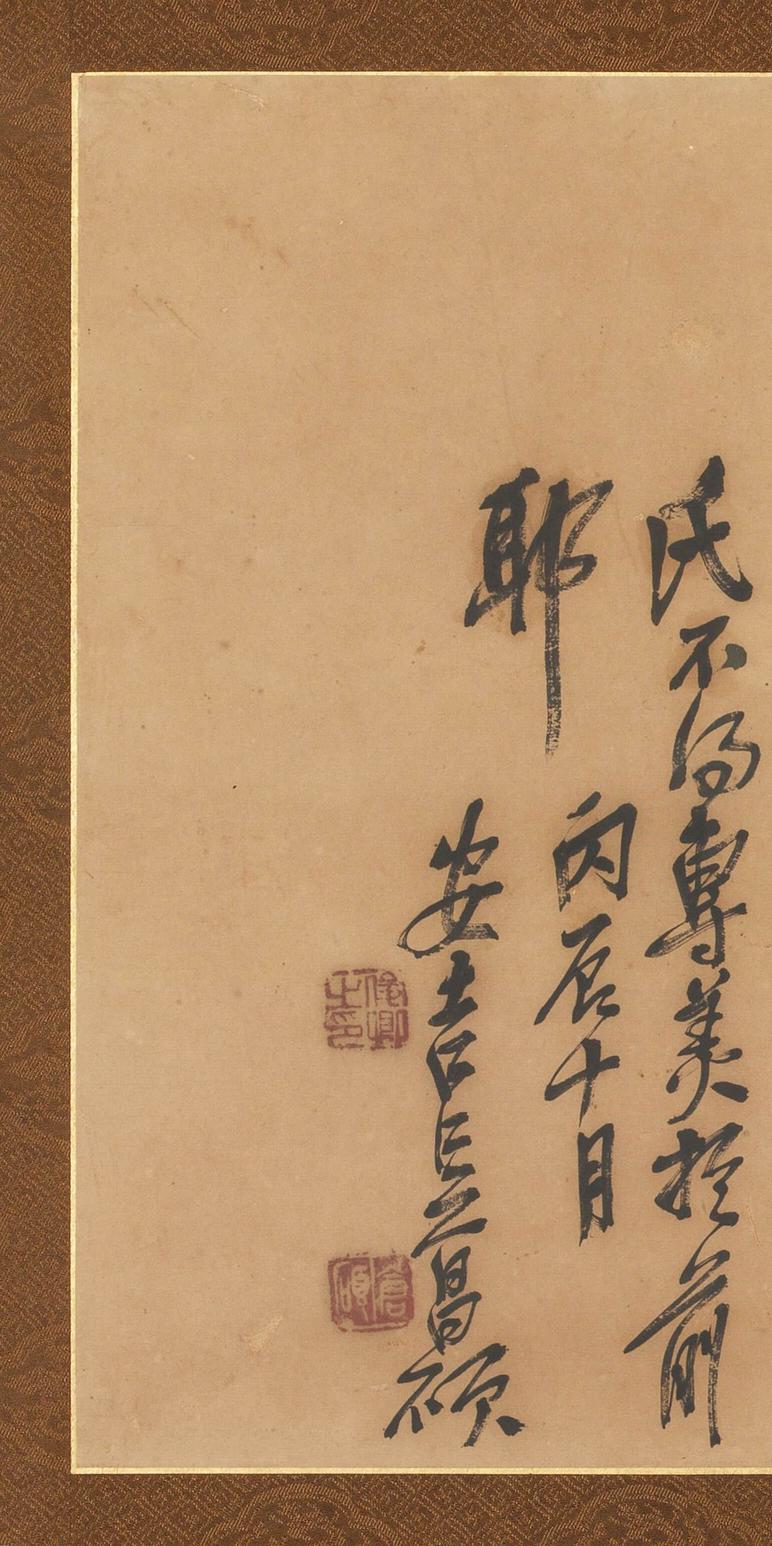 氏不得專美於前
耶 丙辰十月
安吉吳昌碩
俊卿之印
倉碩